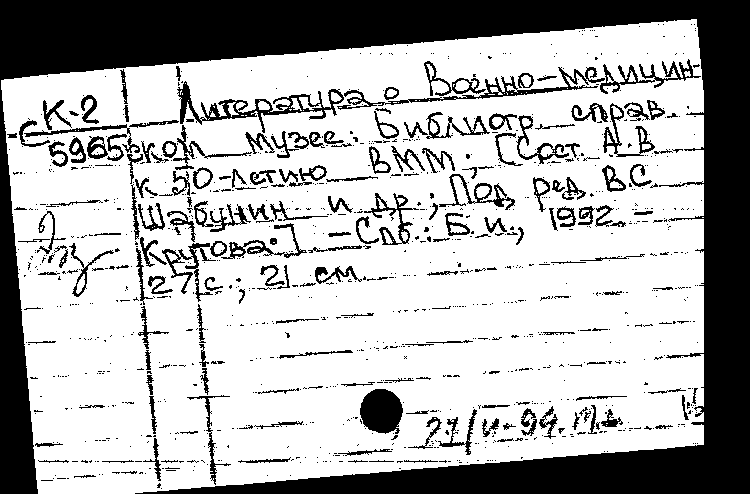 К-2
С 5965
Литература о Военно-медицин-
ском музее: Библиогр. справ.
к 50-летию ВММ; [Сост. А.В
Шабунин и др.; Под ред. В С
Крутова.] - Спб.: Б.и., 1992. -
27 с.; 21 см.
Экз